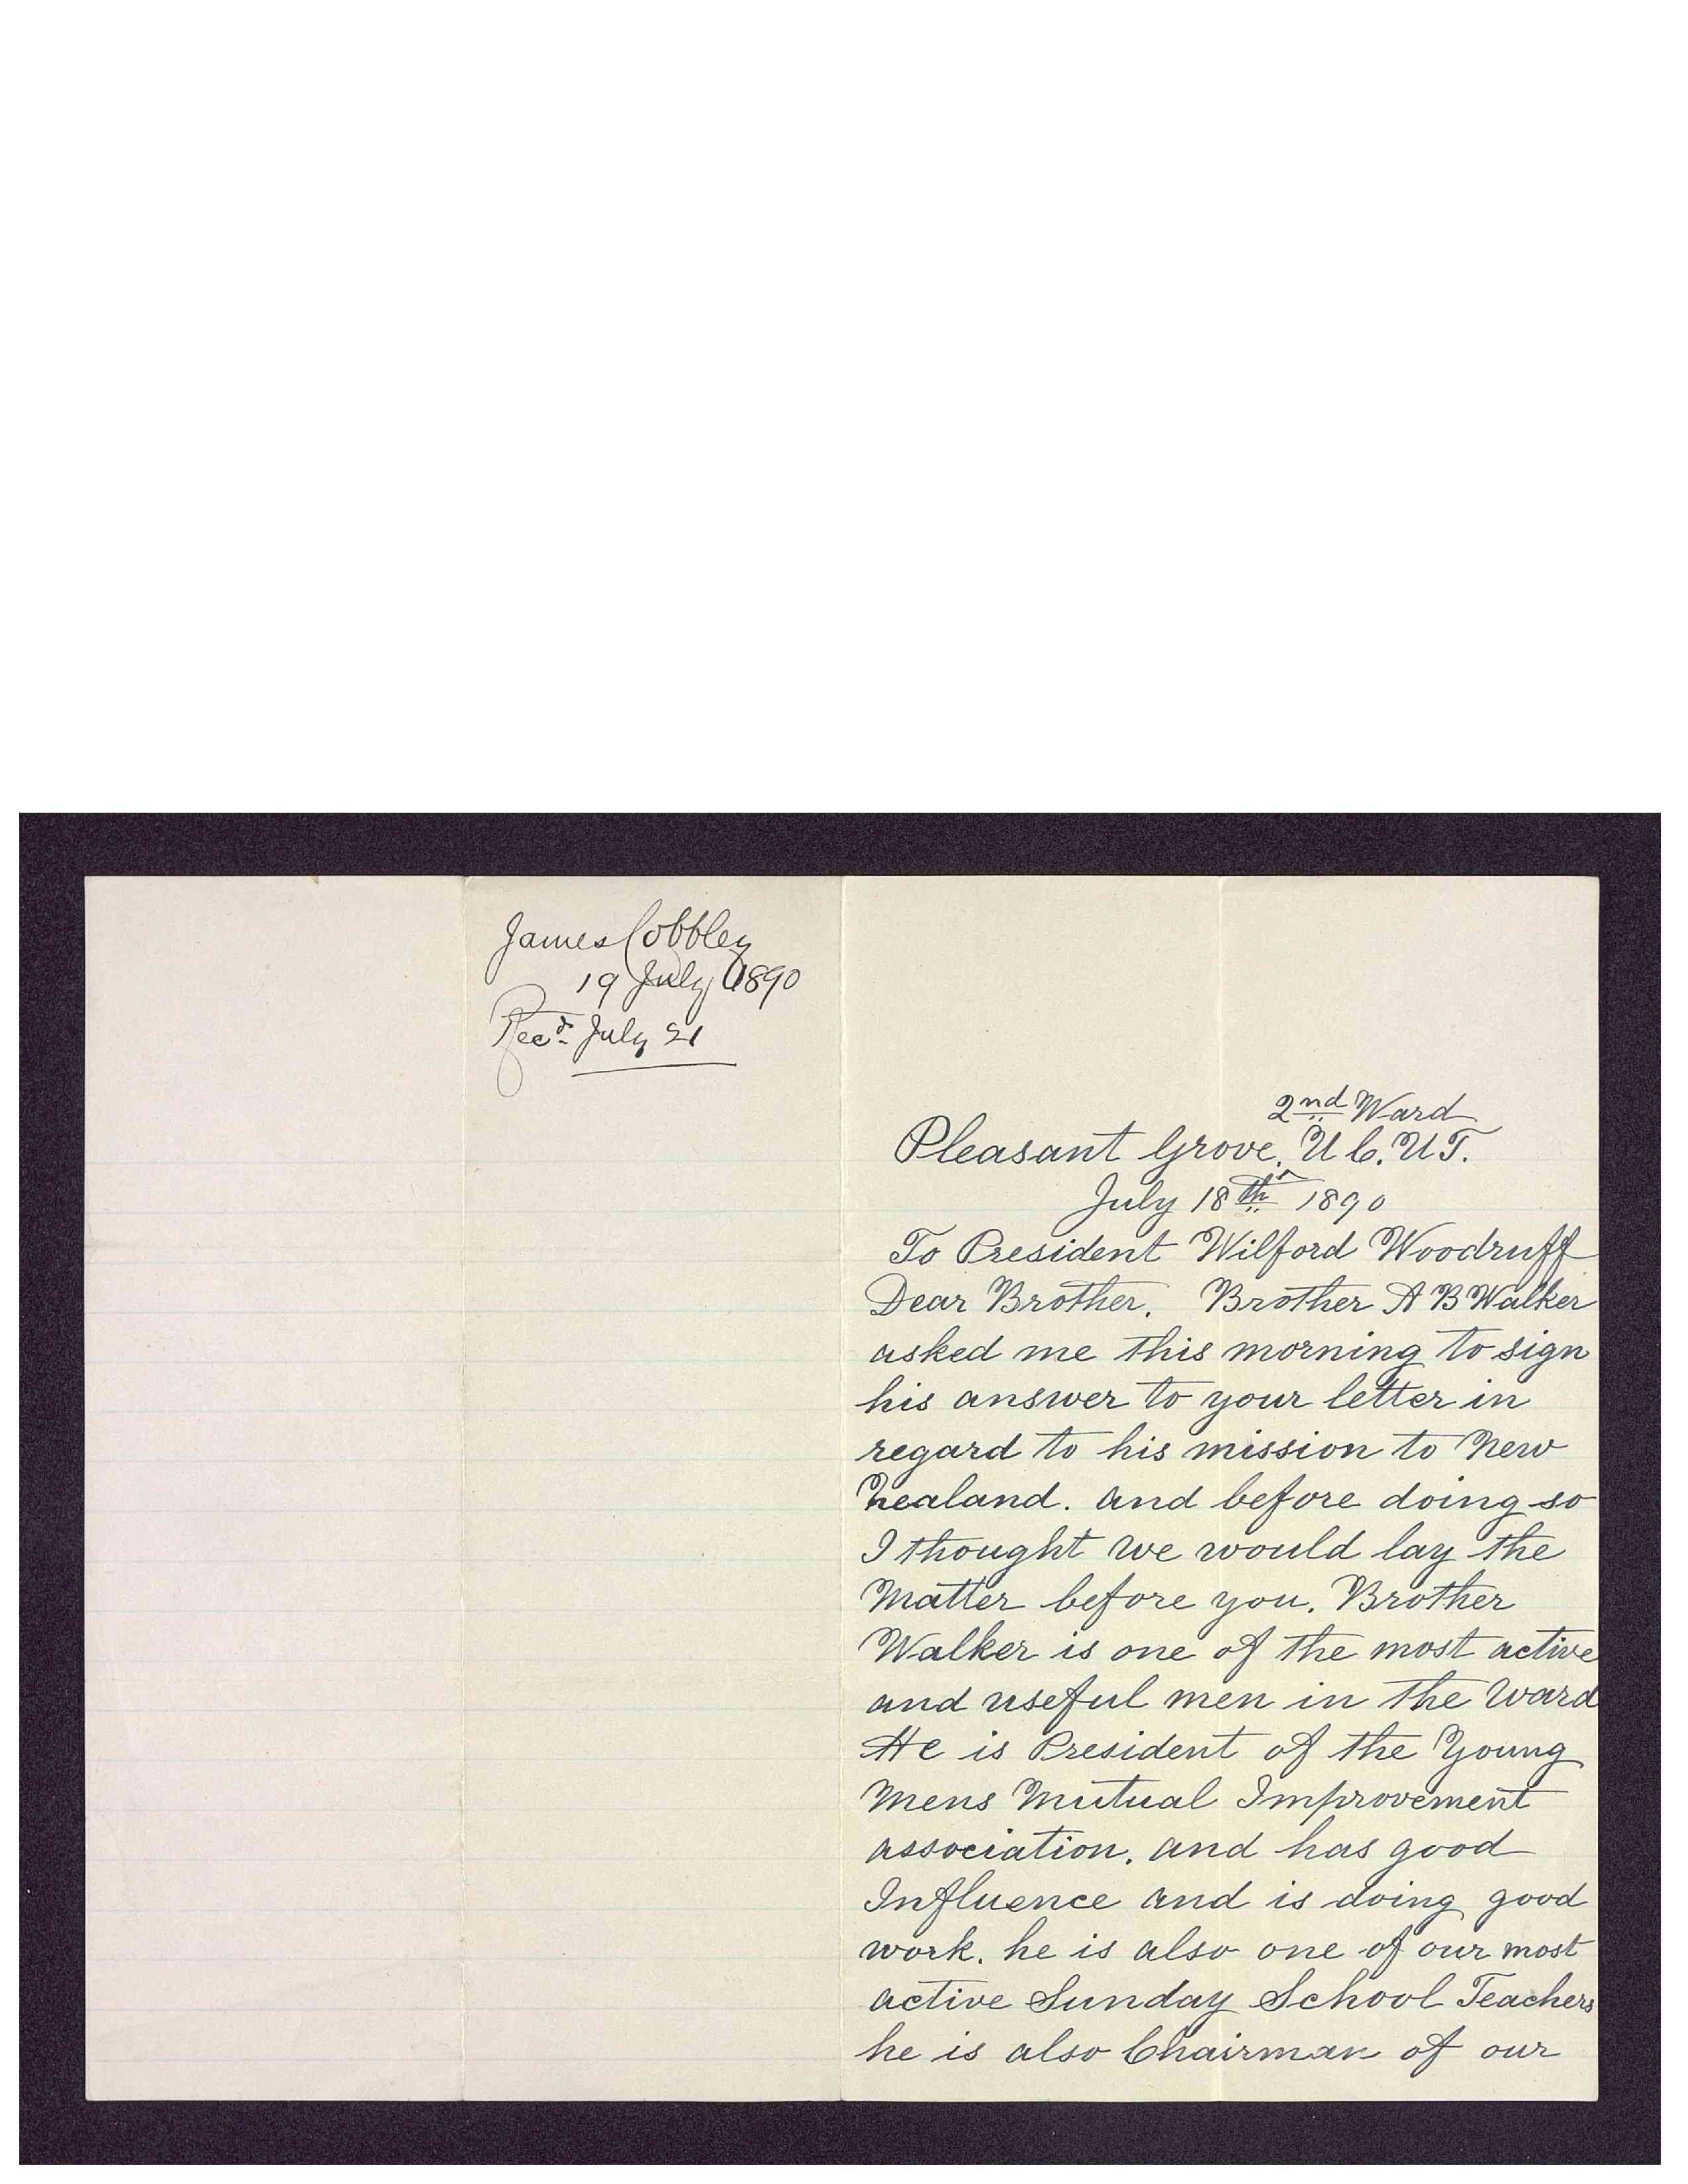 James Cobbley
19 July 1890
Recd July 21
2nd Ward
Pleasant Grove. U C. U T.
July 18th 1890
To President Wilford Woodruff
Dear Brother. Brother A B Walker
asked me this morning to sign
his answer to your letter in
regard to his mission to New
Zealand. and before doing so
I thought we would lay the
Matter before you. Brother
Walker is one of the most active
and useful men in the Ward
He is President of the Young
Mens Mutual Improvement
association. and has good
Influence and is doing good
work. he is also one of our most
active Sunday School Teachers
he is also Chairman of our